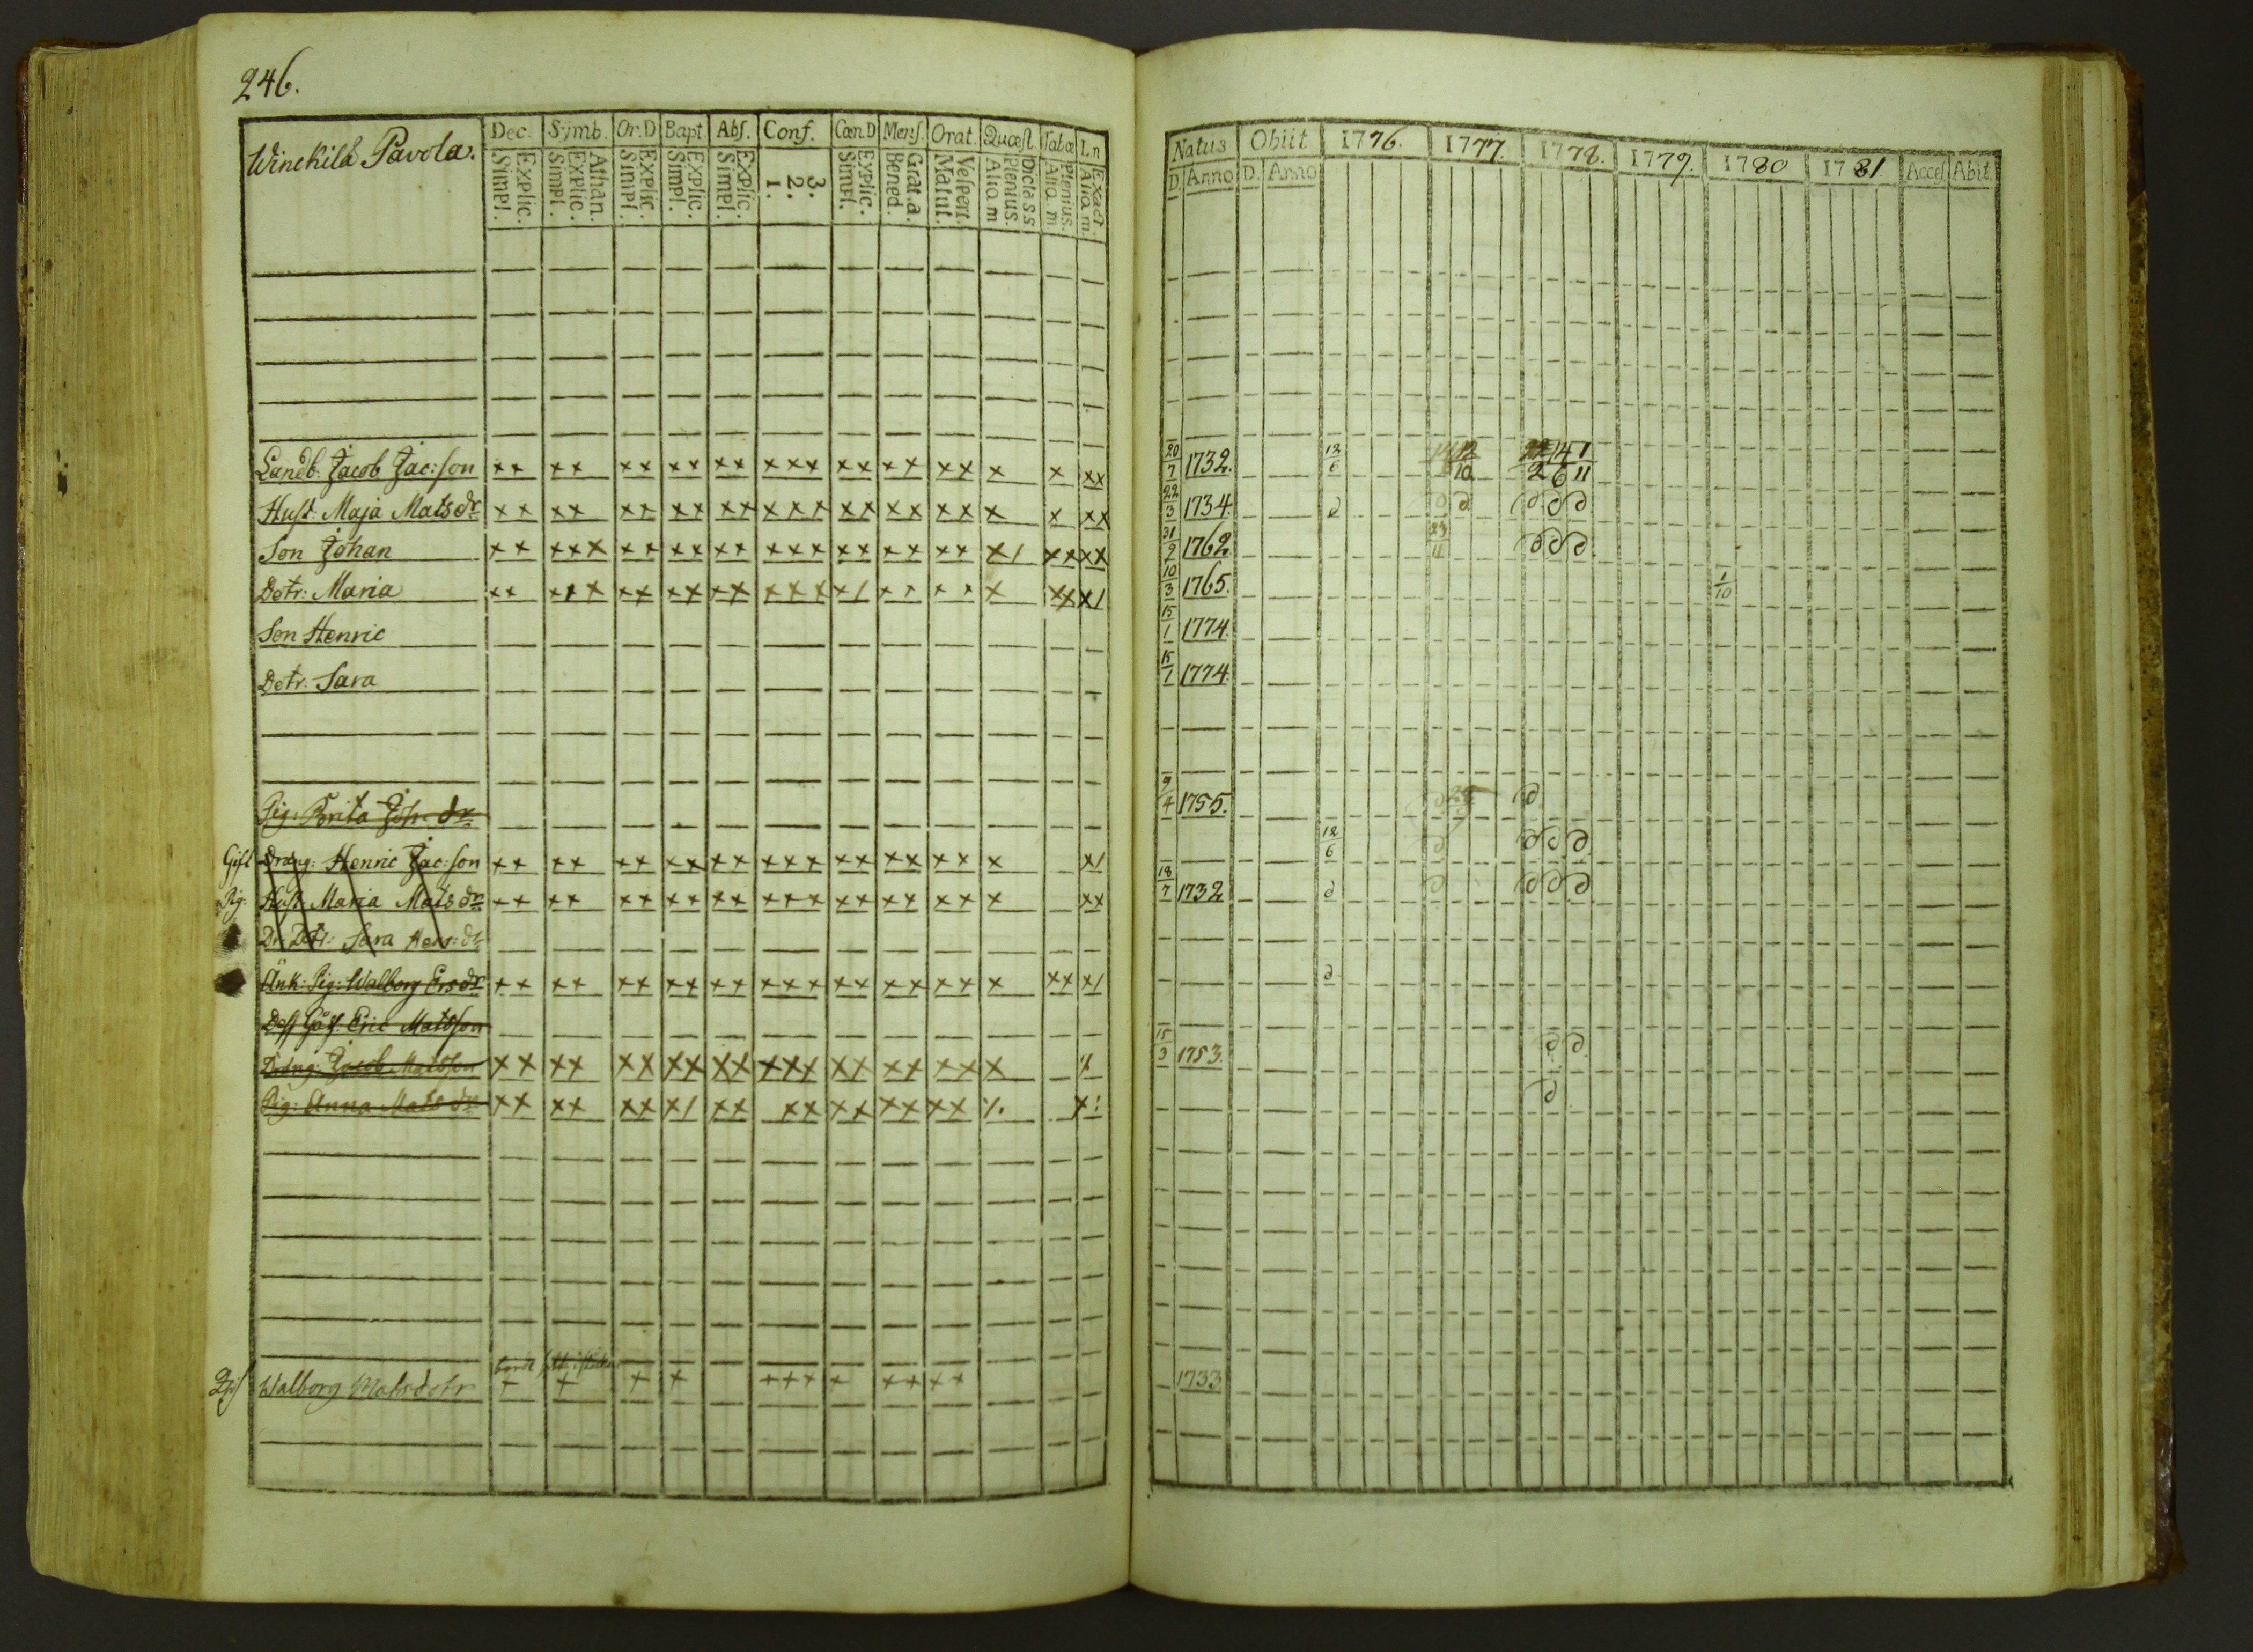 246.
Winckilä Pavola.
Dec. Symb. Or.D Bapt. Abs. Conf. Cœn.D Mens. Orat. Quœst. Tabœ Ln
Explic. Simpl. Athan. Explic. Simpl. Explic. Simpl. Explic. Simpl. Explic. Simpl. 3. 2. 1. Explic. Simpl. Grat.a. Bened. Vespert. Matut. Dicta s s Plenius. Aliq.m Plenius. Aliq.m Exact. Aliq.m
Landb. Jacob Jac:son ×× ×× ×× ×× ×× ××× ×× ×× ×× × × ××
Hust: Maja Matsdr ×× ×× ×× ×× ×× ××× ×× ×× ×× × × ××
Son Johan ×× ××× ×× ×× ×× ××× ×× ×× ×× ×/ ×× ××
Dotr: Maria ×× ××× ×× ×× ×× ××× ×/ ×× ×× × ×× ×/
Son Henric
Dotr: Sara
Pig: Brita Joh: dr
Gift Dräng: Henric Jac:son ×× ×× ×× ×× ×× ××× ×× ×× ×× × ×/
Pig: Hust: Maria Matsdr ×× ×× ×× ×× ×× ××× ×× ×× ×× × ××
Dr: Dotr: Sara Henr: dr
Änk: Pig: Walborg Ersdr ×× ×× ×× ×× ×× ××× ×× ×× ×× × ×× ×/
Eric Matsson
Dräng: Jacob Matsson ×× ×× ×× ×× ×× ××× ×× ×× ×× ×
Pig: Anna Mats dr ×× ×× ×× ×/ ×× ×× ×× ×× ××
Walborg Matsdotr + + + + +++ + ++ ++
Natus Obiit 1776. 1777. 1778. 1779. 1780 1781 Acces Abit.
D. Anno D. Anno
20/7 1732. 12/6 12/10 14/2 4/6 1/11
22/3 1734. ∂ ∂ ∂ ∂ ∂ ∂
31/2 1762. 23/11 ∂ ∂ ∂
10/3 1765. 1/10
15/1 1774.
15/1 1774.
9/4 1755. ∂
12/6 ∂ ∂ ∂ ∂
18/7 1732 ∂ ∂ ∂ ∂ ∂
∂
15/3 1753. ∂ ∂
∂
1733